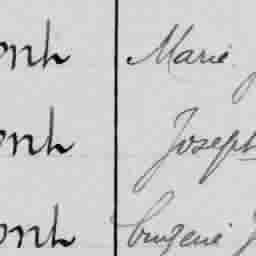 onh Marie
onh Joseph
onh Eugénie